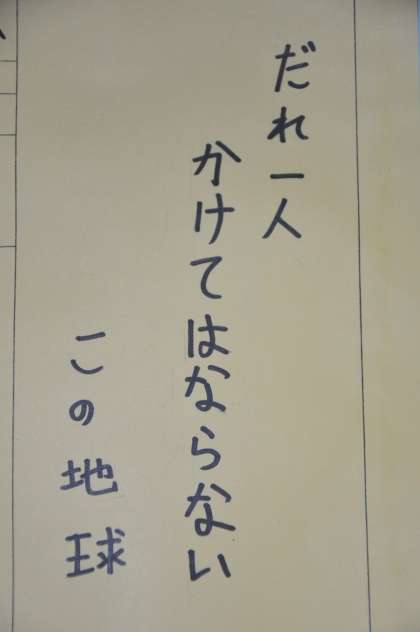 だれ一人
かけてはならない
この地球